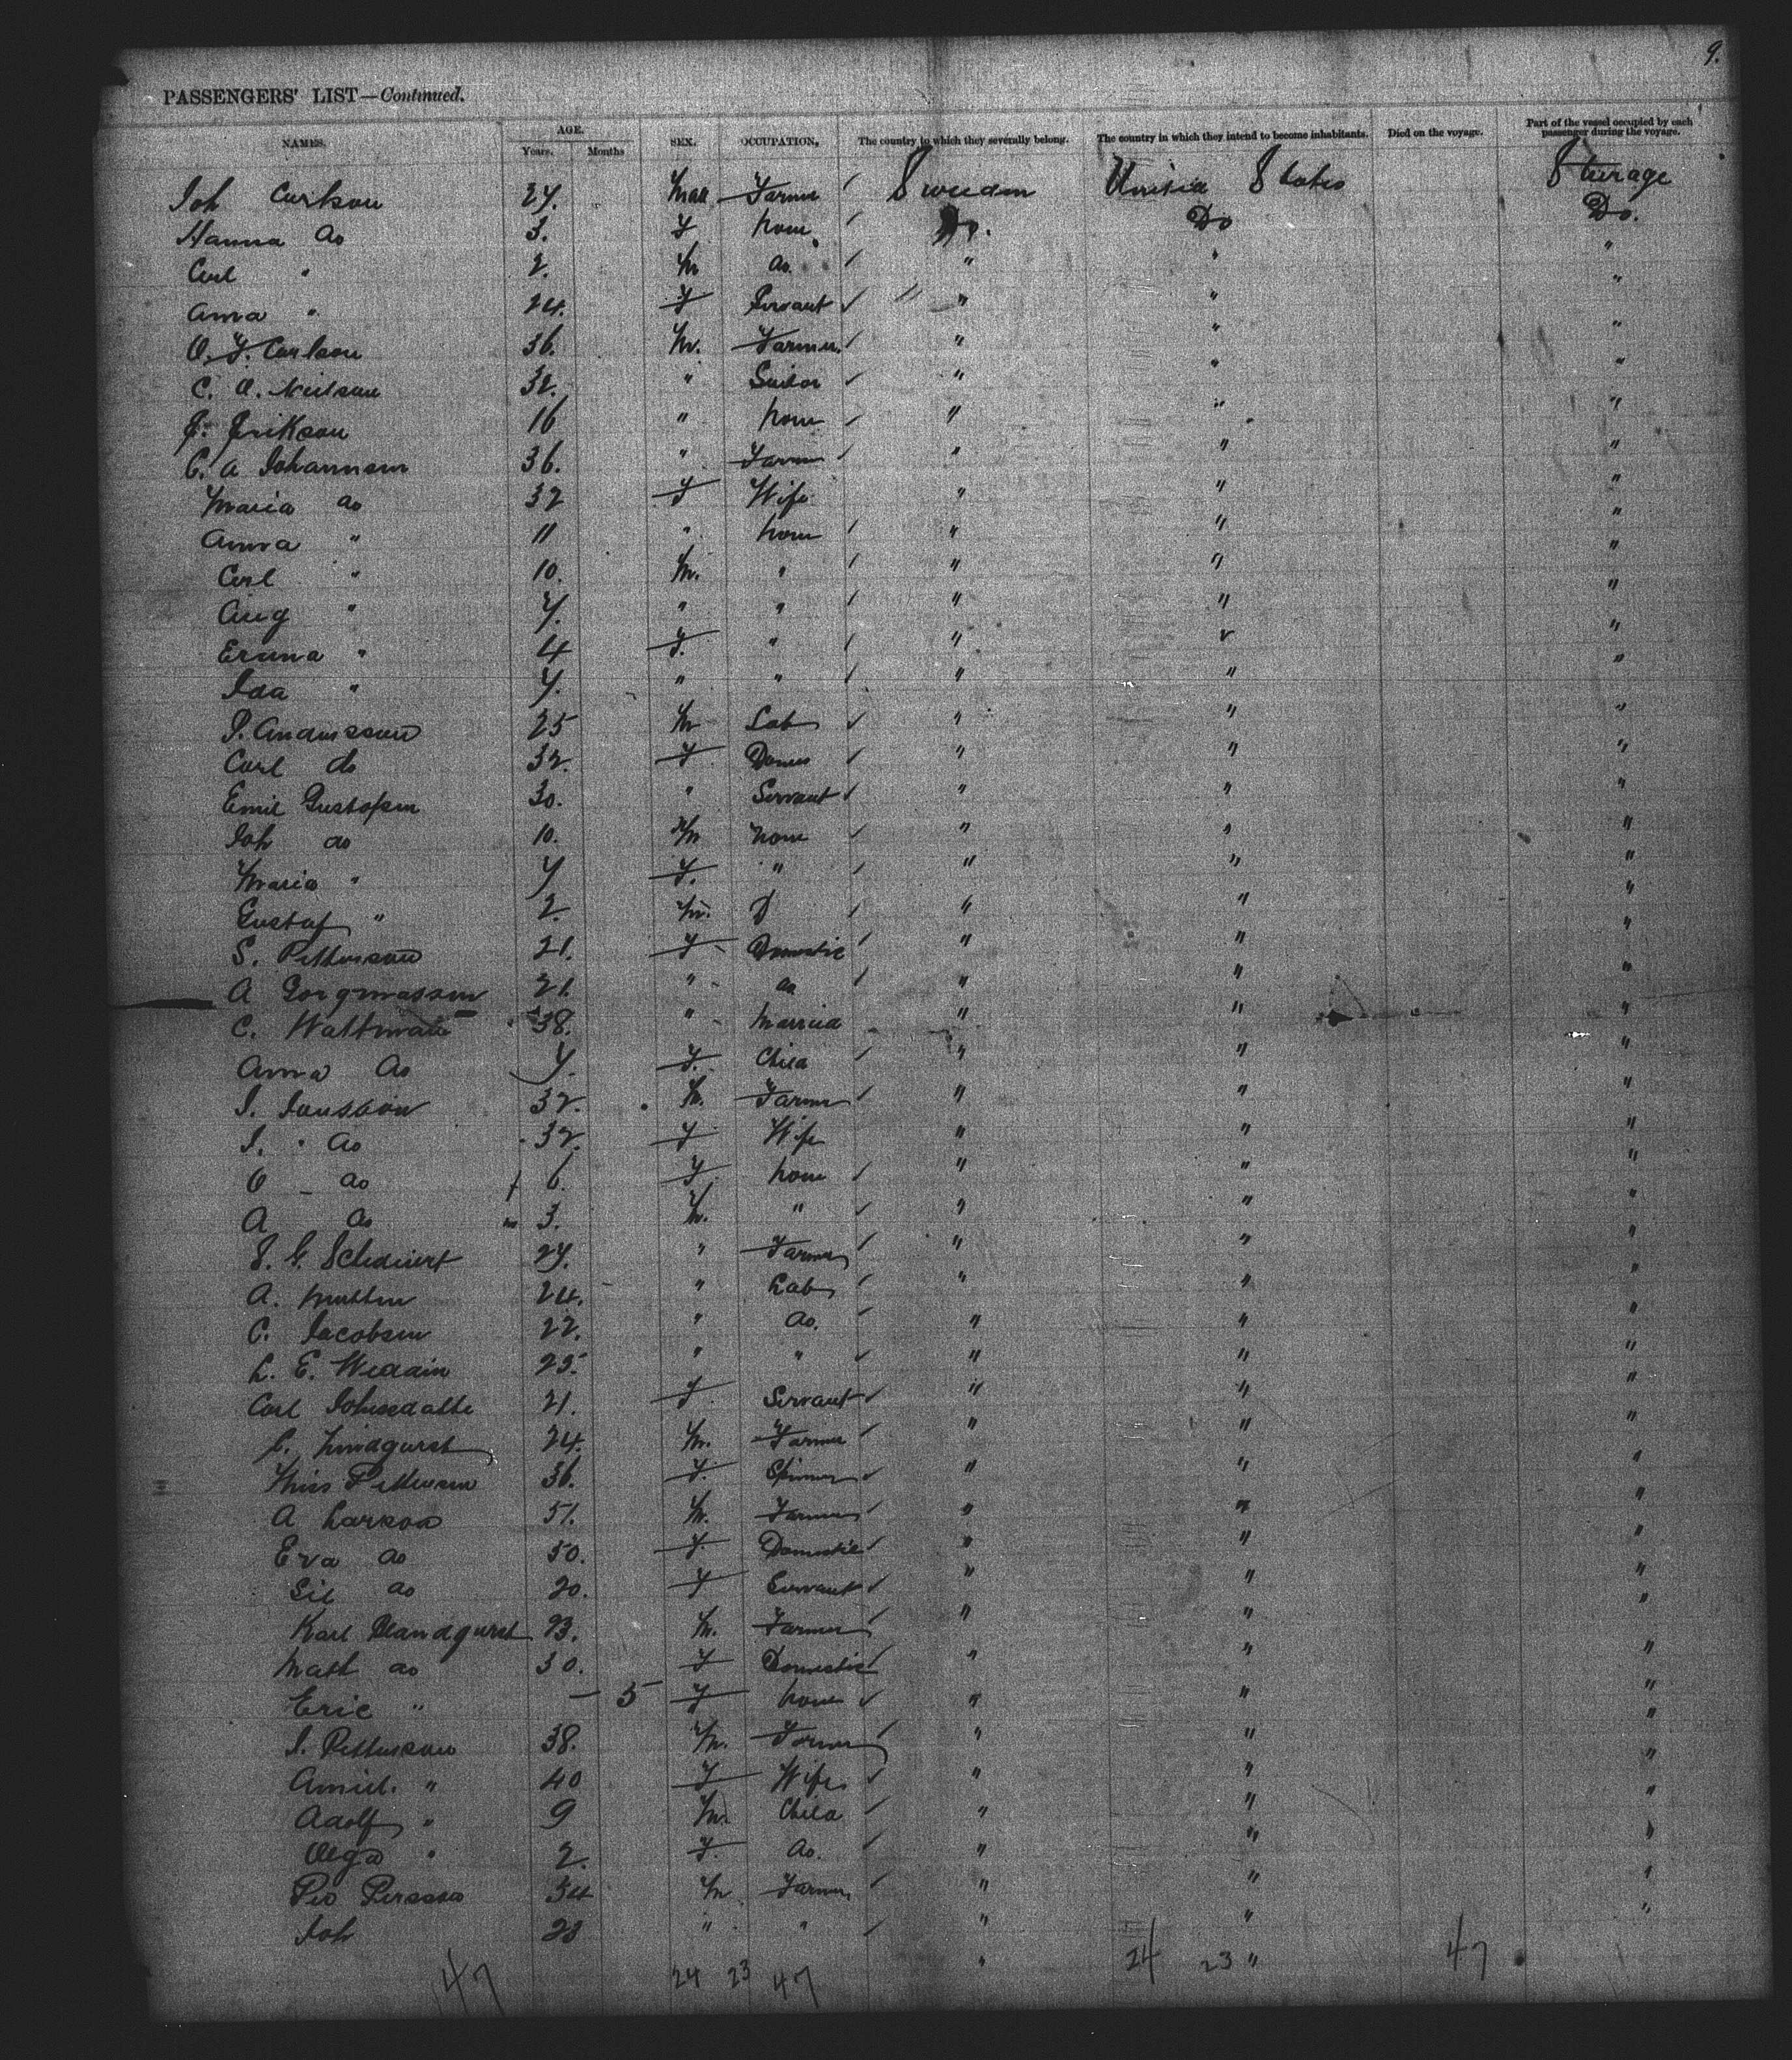 9.
PASSENGERS' LIST—Continued.
NAMES. AGE. Years. Months SEX. OCCUPATION, The country to which they severally belong. The country in which they intend to become inhabitants. Died on the voyage. Part of the vessel occupied by each passenger during the voyage.
Joh Carlson 27. Male Farmer Sweden United States Steerage
Hanna do 3. F None Do. Do Do.
Carl " 2. M do. " " "
Anna " 24. F Servant " " "
O. F. Carlson 36. M. Farmer. " " "
C. A. Neilson 32. " Sailor " " "
J. Erikson 16 " None " " "
C. A Johannsen 36. " Farmer " " "
Maria do 32 F Wife " " "
Anna " 11 " None " " "
Carl " 10. M. " " " "
Aug " 7. " " " " "
Emma " 4 F. " " " "
Ida " 7. " " " " "
P. Anderssou 25 M Lab " " "
Carl do 32. F Domes " " "
Emil Gustafsen 30. " Servant " " "
Joh do 10. M None " " "
Maria " 7 F. " " " "
Gustaf " 2. M. D " " "
S. Petterson 21. F Domestic " " "
A 21. " do " " "
C. Wattman 38. " Married " " "
Anna do 7. F. Child " " "
J. Jansson 32. M. Farmer " " "
J. " do 32. F Wife " " "
O - do f 6. F. None " " "
A do m 3. M. " " " "
27. " Farmer " " "
A. 24. " Lab " " "
C. Jacobsen 22. " do. " " "
L. E. 25. " " " " "
Carl 21. F. Servant " " "
C. Lindqurst 24. M. Farmer " " "
Miss Pettersen 36. F. " " "
A Larson 51. M. Farmer " " "
Eva do 50. F. Domestic " " "
Sil do 20. F Servant " " "
Karl 23. M. Farmer " " "
Math do 30. F Domestic " " "
Eric " — 5 F None " " "
J. Petterson 38. M. Farmer " " "
" 40 F Wife " " "
Adolf " 9 M. Child " " "
Olga " 2. F. do. " " "
Per Persson 34 M Farmer " " "
Joh 28 " " " " "
47 24 23 47 " 24 23 " 47